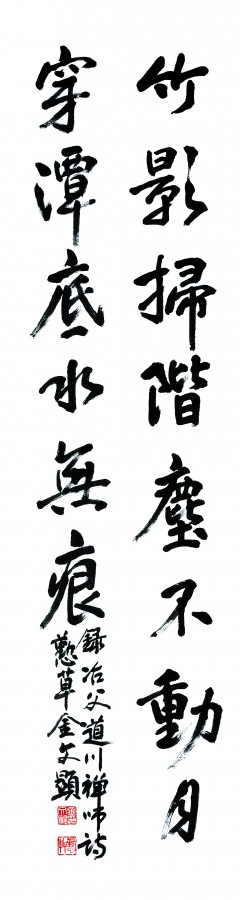 竹影掃階塵不動月
穿潭底水無痕
録冶父道川禅师詩
草金文顯